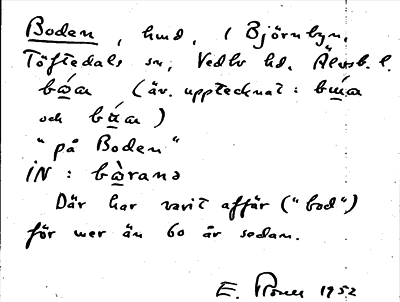 Boden, hmd, i Björnbyn,
Töftedals sn, Vedbo hd, Älvsb. l.
(äv. upptecknat:
och
"på Boden"
IN:
Där har varit affär ("bod")
för mer än 60 år sedan.
E. 1952